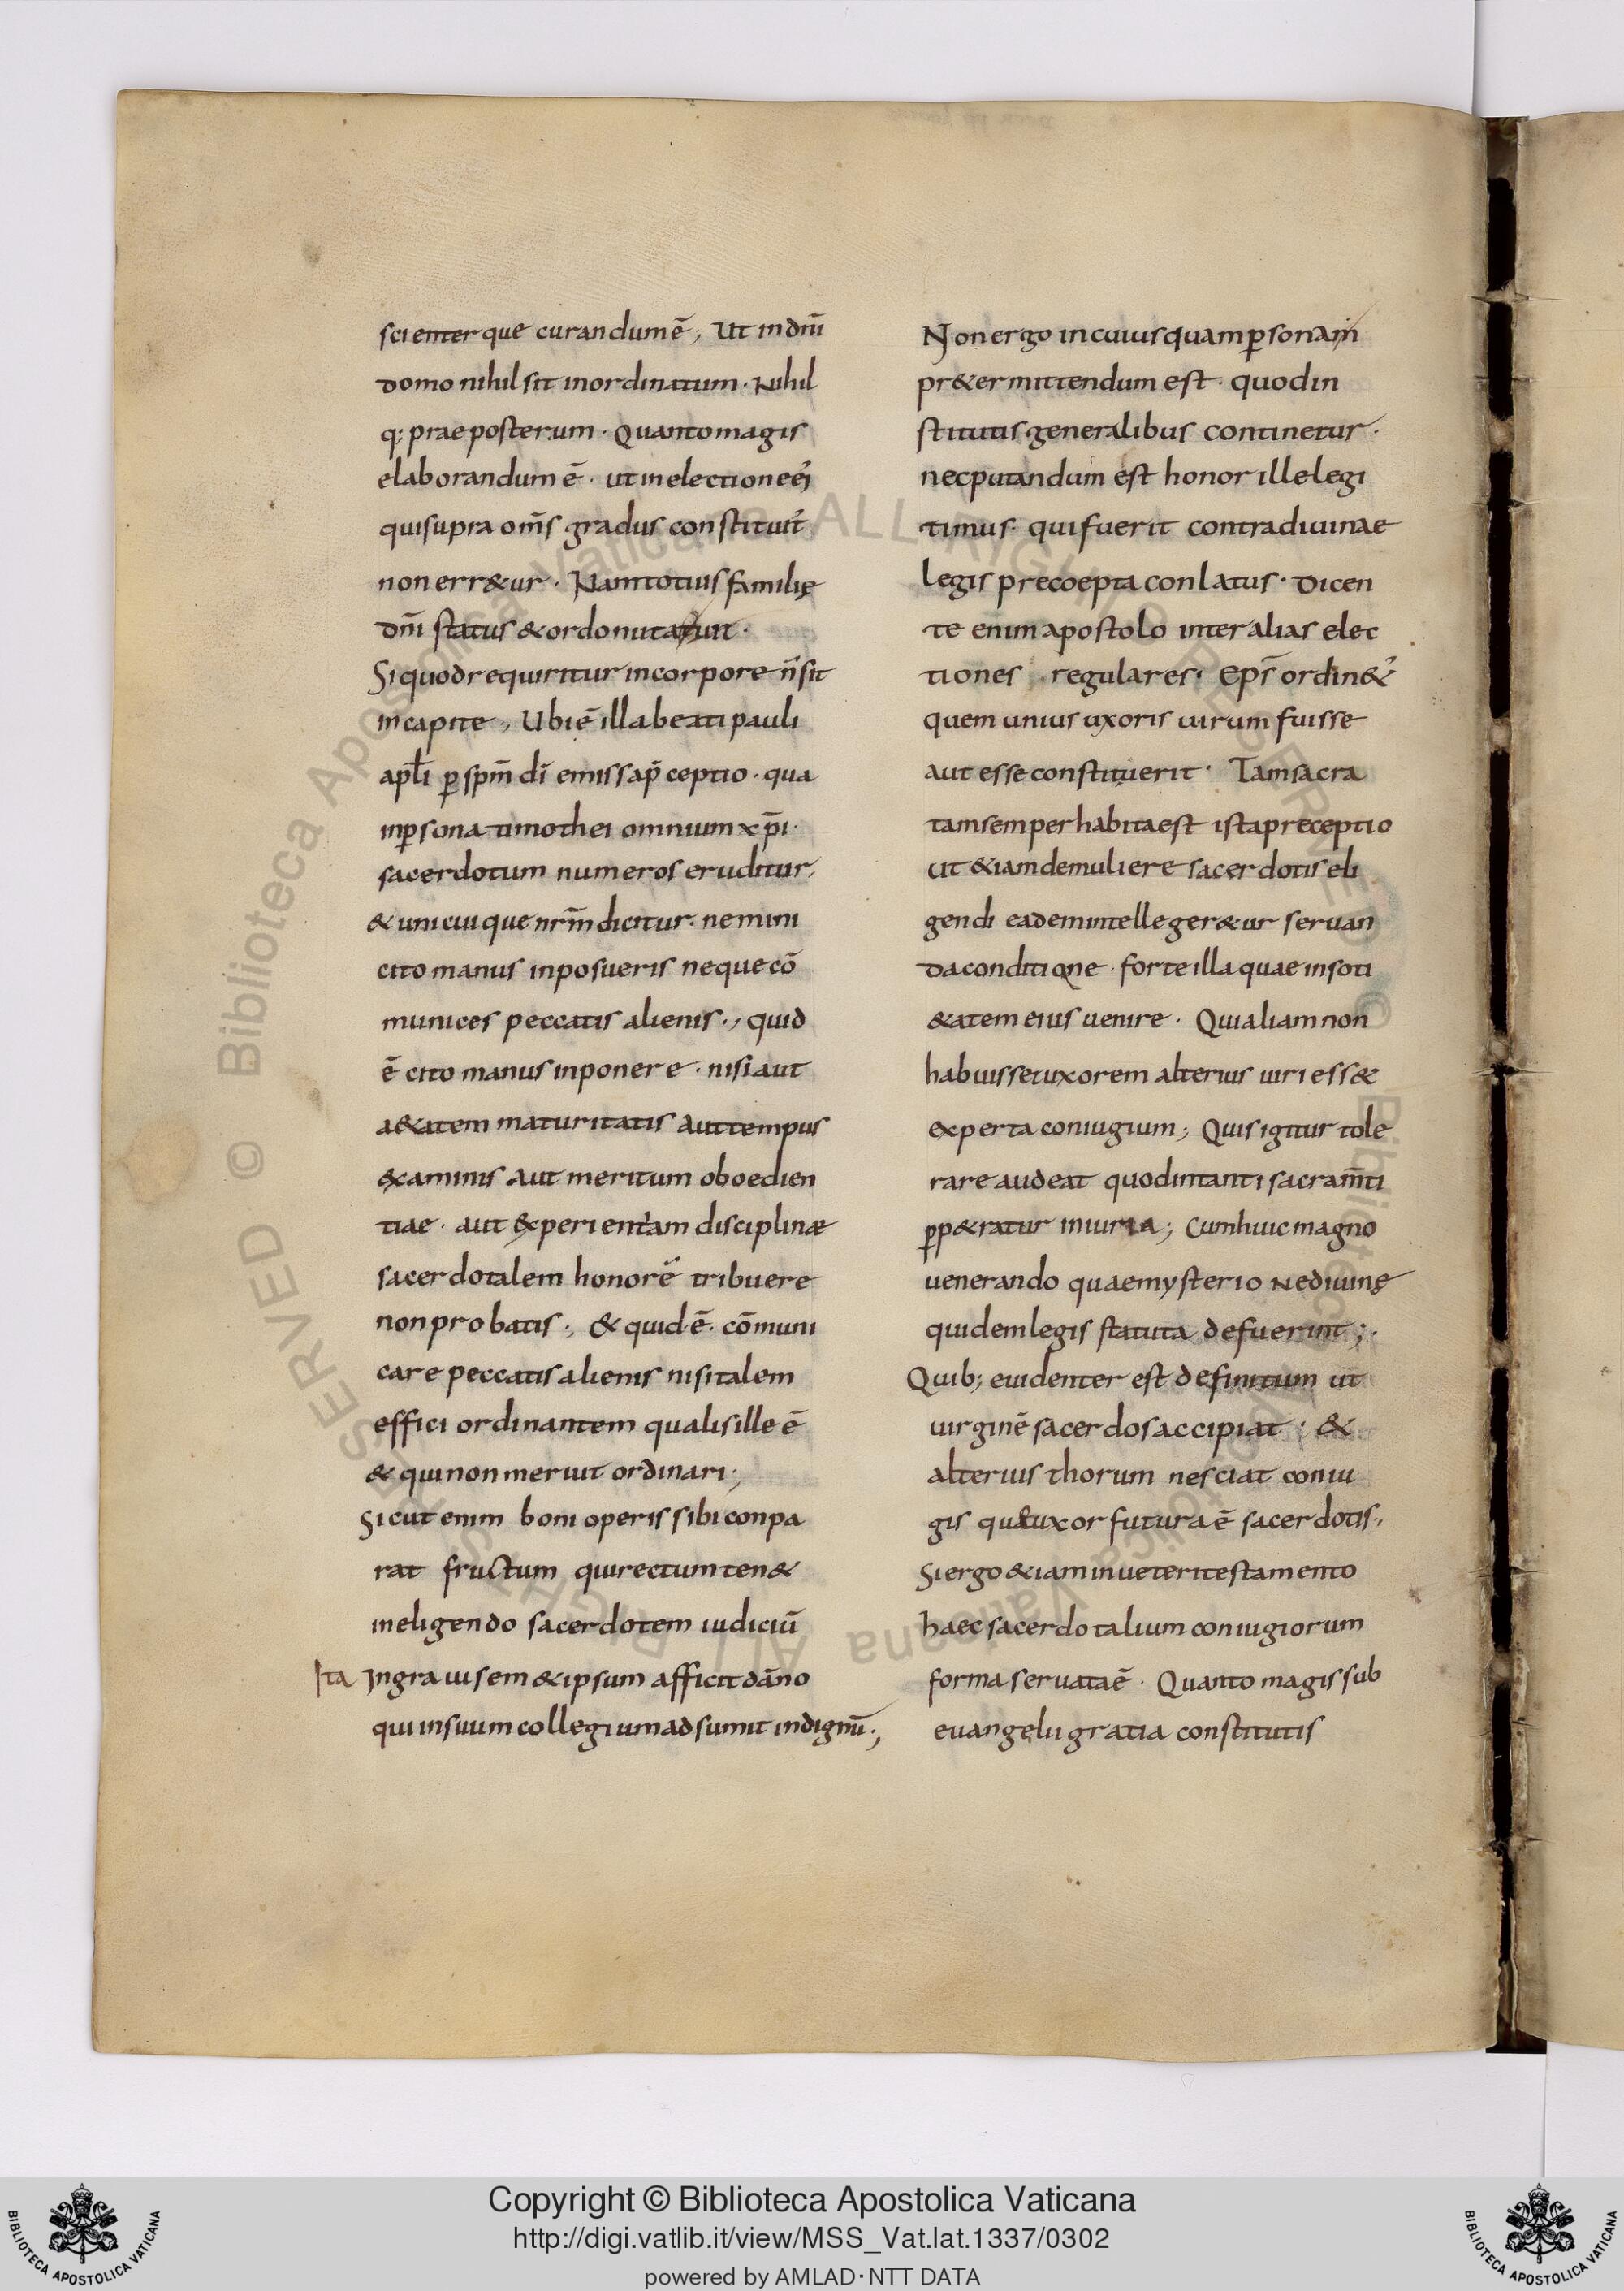 scienterque curandum ē, Ut in dn̄i
domo nihil sit inordinatum · Nihil
q: praeposterum · Quanto magis
elaborandum ē · ut in electione ei᾿
qui supra om̄s gradus constituit᾿
non err&ur · Nam totius familię
dn̄i status & ordo nuta
Si quod requiritur in corpore n̄ sit
in capite, Ubi ē illa beati pauli
apl̄i ꝑ spm̄ dī emissa p̄ceptio · qua
in ꝑsona timothei omnium xp̄i ·
sacerdotum numeros eruditur,
& unicuique nr̄m dicitur · nemini
cito manus inposueris neque cō
munices peccatis alienis ·, quid
ē cito manus inponere · nisi aut
a&atem maturitatis aut tempus
examinis aut meritum oboedien
tiae · aut experientam disciplinae
sacerdotalem honorē tribuere
non probatis ·, & quid ē · cōmuni
care peccatis alienis nisi talem
effici ordinantem qualis ille ē
& qui non meruit ordinari ·,
Sicut enim boni operis sibi conpa
rat fructum qui rectum ten&
in eligendo sacerdotem iudiciū
Ita In gravi sem&ipsum afficit dāno
qui in suum collegium adsumit indignū ·,
Non ergo in cuiusquam ꝑsonam
pr&ermittendum est · quod in
stitutis generalibus continetur ·
nec putandum est honor ille legi
timus · qui fuerit contra diuinae
legis precoepta conlatus · Dicen
te enim apostolo inter alias elec
tiones regulares · Ep̄s ordin&᾿
quem unius uxoris uirum fuisse
aut esse constituerit · Tam sacra
tam semper habita est ista preceptio
ut &iam de muliere sacerdotis eli
gendi eadem intelleger&ur seruan
da conditione · forte illa quae in soti
&atem eius uenire · Qui aliam non
habuisset uxorem alterius uiri ess&
experta coniugium ; Quis igitur tole
rare audeat quod in tanti sacram̄ti
ꝑp&ratur iniuria ; Cum huic magno
uenerando quae mysterio Ne diuinę
quidem legis statuta defuerint ; ·
Quib; euidenter est definitum ut
uirginē sacerdos accipiat · &
alterius thorum nesciat coniu
gis quae uxor futura ē sacerdotis ·,
Si ergo &iam in ueteri testamento
haec sacerdotalium coniugiorum
forma seruata ē · Quanto magis sub
euangelii gratia constitutis
Copyright © Biblioteca Apostolica Vaticana
http://digi.vatlib.it/view/MSS_Vat.lat.1337/0302
powered by AMLAD·NTT DATA
BIBLIOTECA APOSTOLICA VATICANA
BIBLIOTECA APOSTOLICA VATICANA